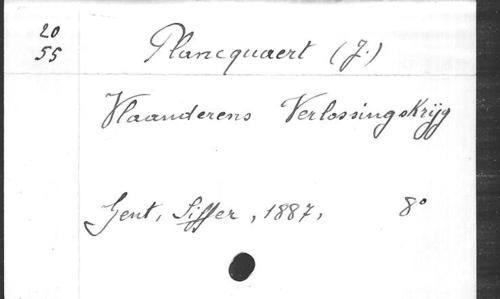 20
55
Plancquaert (J.)
Vlaanderens Verlossingskrijg
Gent, Siffer, 1887, 8°